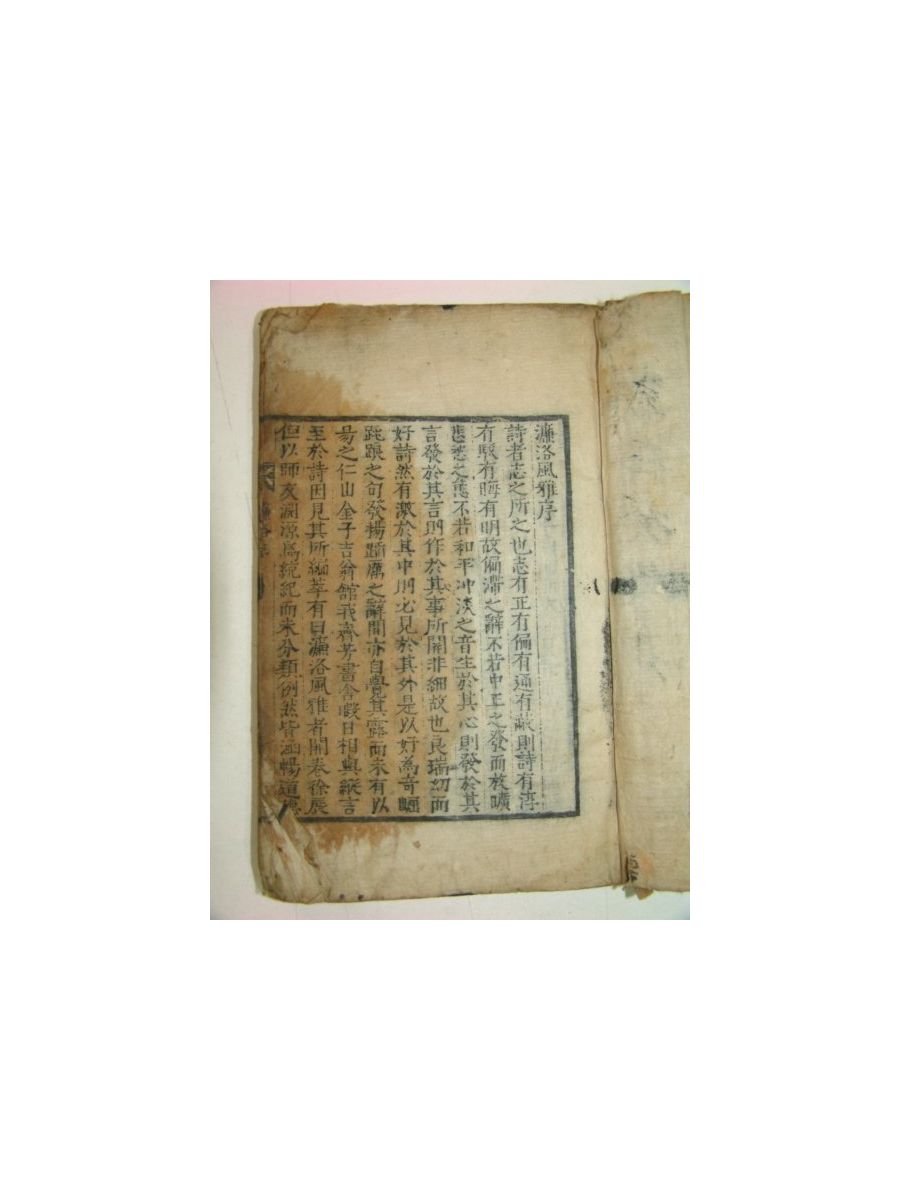 濂洛風雅序
詩者志之所之也志有正有偏有通有蔽則詩有淳
有駁有晦有明故偏滯之辭不若中正之發而放曠
悲愁之態不若和平冲淡之音生於其心則發於其
言發於其言則作於其事所關非細故也良瑞幼而
好詩然有激於其中則必見於其外是以好為奇崛
跎踉之句發揚蹈厲之辭間亦自覺其露而未有以
易之仁山金子吉翁館我齊芳書舍暇日相與縱言
至於詩因見其所編萃有曰濂洛風雅者開卷徐展
但以師友淵源爲統紀而未分類例然皆涵暢道德